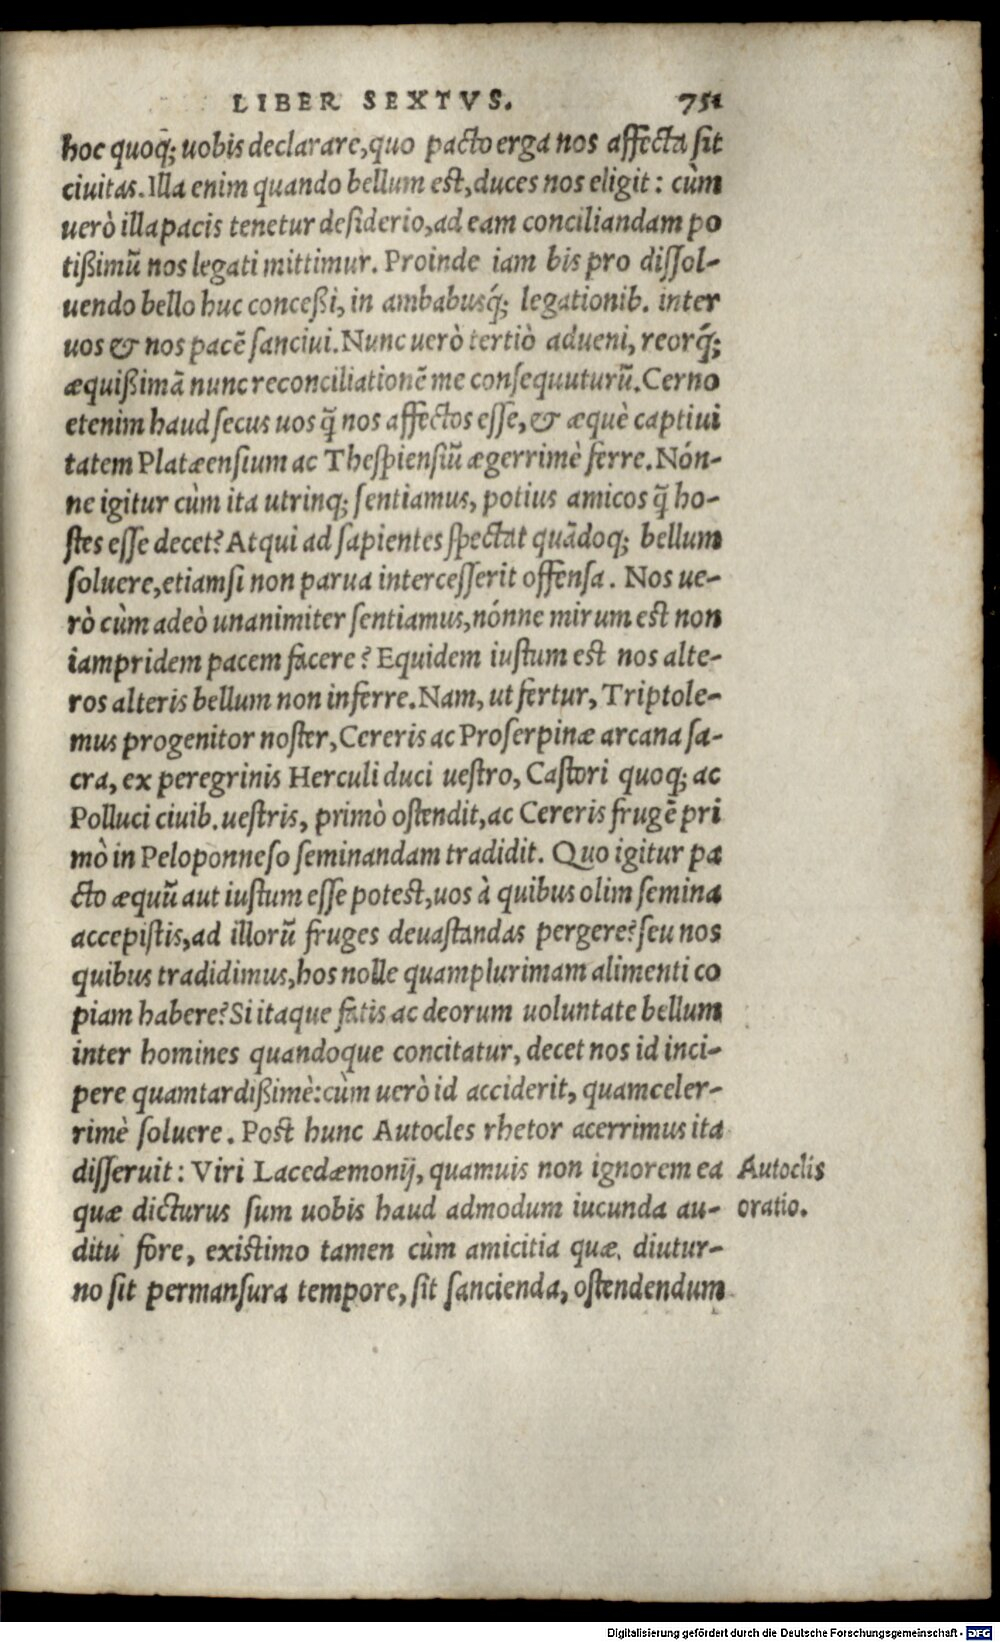 LIBER SEXTVS. 751
hoc quoq̃; uobis declarare, quo pacto erga nos affecta sit
ciuitas. Illa enim quando bellum est, duces nos eligit: cùm
uerò illa pacis tenetur desiderio, ad eam conciliandam po
tißimũ nos legati mittimur. Proinde iam bis pro dissol-
uendo bello huc conceßi, in ambabusq́; legationib. inter
uos & nos pacẽ sanciui. Nunc uerò tertiò adueni, reorq́;
æquißimã nunc reconciliationẽ me consequuturũ. Cerno
etenim haud secus uos q̃ nos affectos esse, & æquè captiui
tatem Platæensium ac Thespiensiũ ægerrimè ferre. Nón-
ne igitur cùm ita utrinq; sentiamus, potius amicos q̃ ho-
stes esse decet? Atqui ad sapientes spectat quãdoq; bellum
soluere, etiamsi non parua intercesserit offensa. Nos ue-
rò cùm adeò unanimiter sentiamus, nónne mirum est non
iampridem pacem facere? Equidem iustum est nos alte-
ros alteris bellum non inferre. Nam, ut fertur, Triptole-
mus progenitor noster, Cereris ac Proserpinæ arcana sa-
cra, ex peregrinis Herculi duci uestro, Castori quoq; ac
Polluci ciuib. uestris, primò ostendit, ac Cereris frugẽ pri
mò in Peloponneso seminandam tradidit. Quo igitur pa
cto æquũ aut iustum esse potest, uos à quibus olim semina
accepistis, ad illorũ fruges deuastandas pergere? seu nos
quibus tradidimus, hos nolle quamplurimam alimenti co
piam habere? Si itaque fatis ac deorum uoluntate bellum
inter homines quandoque concitatur, decet nos id inci-
pere quamtardißimè: cùm uerò id acciderit, quamceler-
rimè soluere. Post hunc Autocles rhetor acerrimus ita
disseruit: Viri Lacedæmonij, quamuis non ignorem ea
quæ dicturus sum uobis haud admodum iucunda au-
ditu fore, existimo tamen cùm amicitia quæ diutur-
no sit permansura tempore, sit sancienda, ostendendum
Autoclis
oratio.
Digitalisierung gefördert durch die Deutsche Forschungsgemeinschaft - DFG